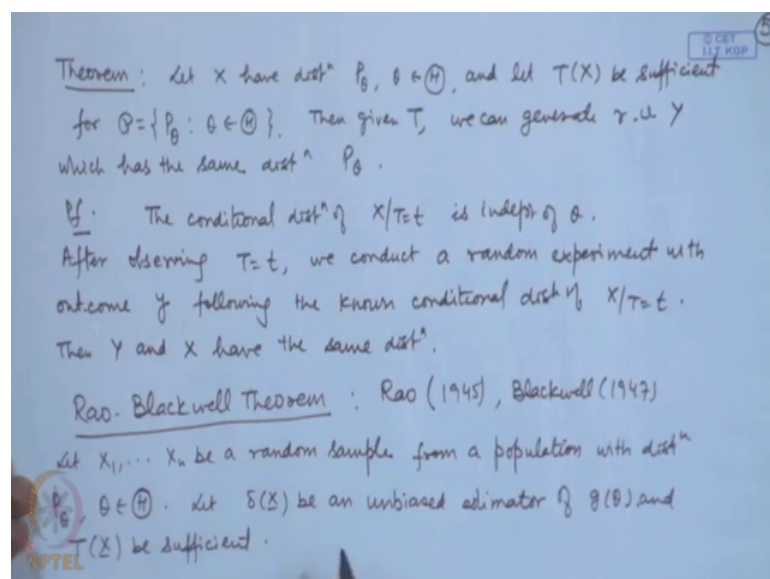 5
© CET
I.I.T. KGP
Theorem : Let X have distⁿ P_θ, θ ∈ Ⓗ, and let T(X) be sufficient
for 𝒫 = {P_θ : θ ∈ Ⓗ}. Then given T, we can generate r.v. Y
which has the same distⁿ P_θ.
Pf. The conditional distⁿ of X/T=t is indept of θ.
After observing T=t, we conduct a random experiment with
outcome y following the known conditional dist of X/T=t.
Then Y and X have the same distⁿ.
Rao-Blackwell Theorem : Rao (1945), Blackwell (1947)
Let X₁, ... Xₙ be a random sample from a population with distⁿ
P_θ, θ ∈ Ⓗ. Let δ(X) be an unbiased estimator of g(θ) and
T(X) be sufficient.
NPTEL